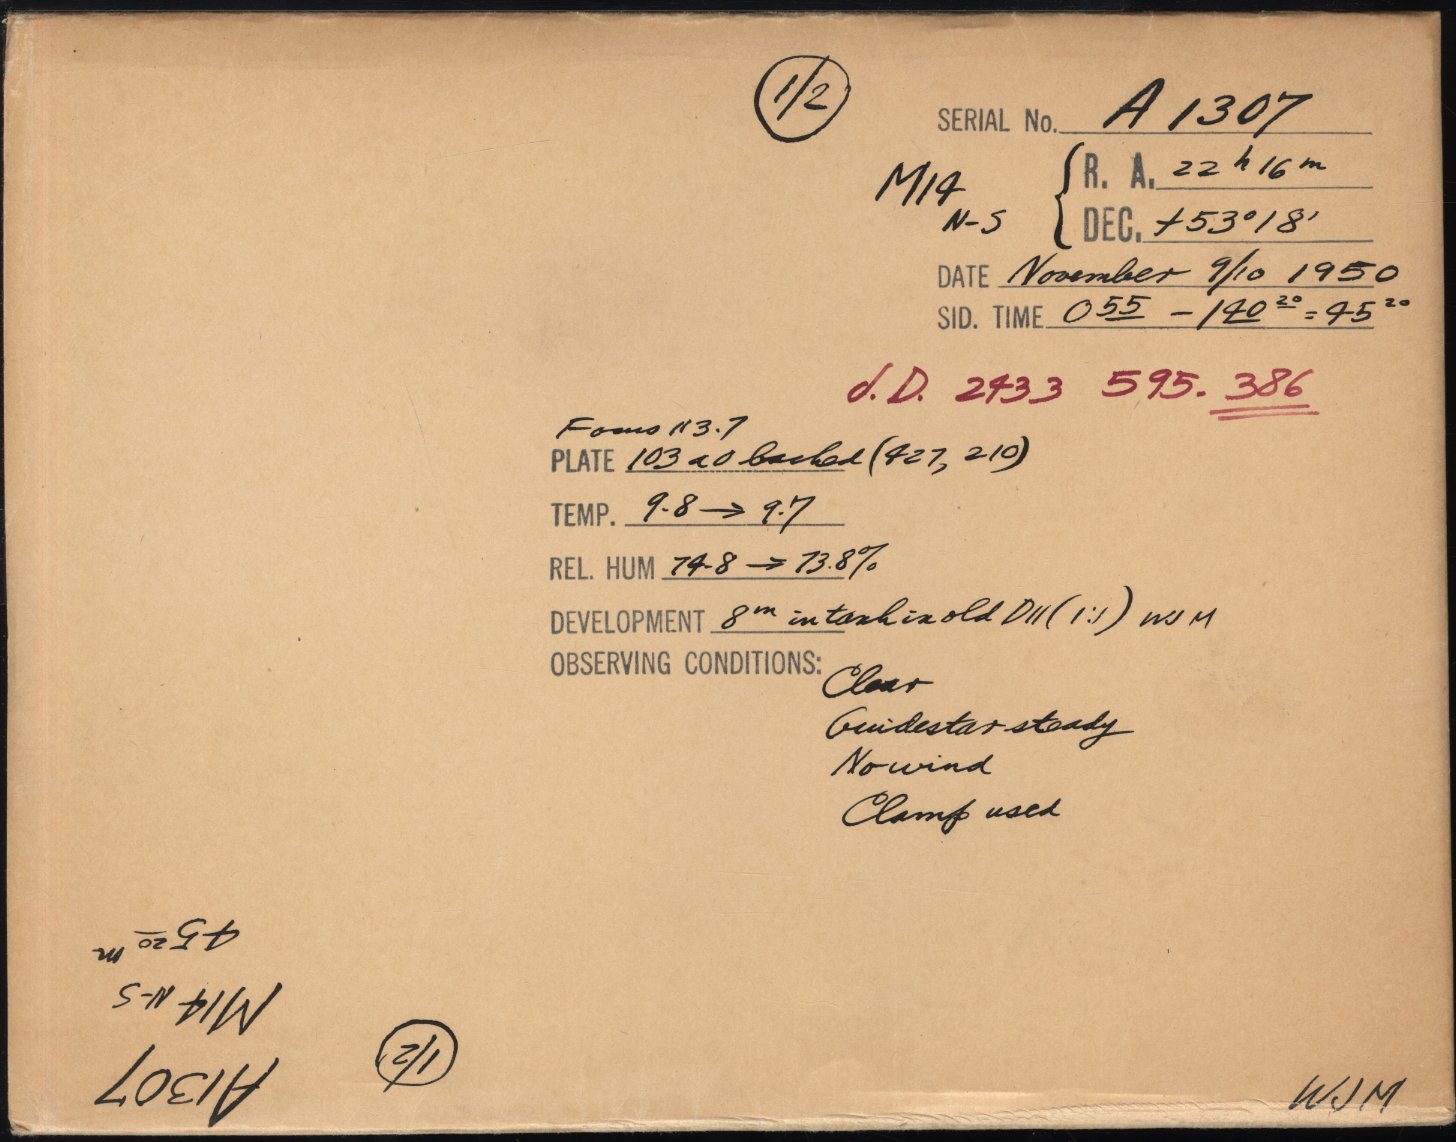 1/2
SERIAL No. A 1307
M14 { R. A. 22 h 16 m
N-S DEC. +53°18'
DATE November 9/10 1950
SID. TIME 0 55 - 140 20 = 45 20
J.D. 2433 595.386
Focus 113.7
PLATE 103 aO backed (427, 210)
TEMP. 9.8 → 9.7
REL. HUM 74.8 → 73.8%
DEVELOPMENT 8m in tank in old D11 (1:1) WJM
OBSERVING CONDITIONS:
Clear
Guidestar steady
No wind
Clamp used
A1307
M14 N-S
45 20 m
1/2
WJM